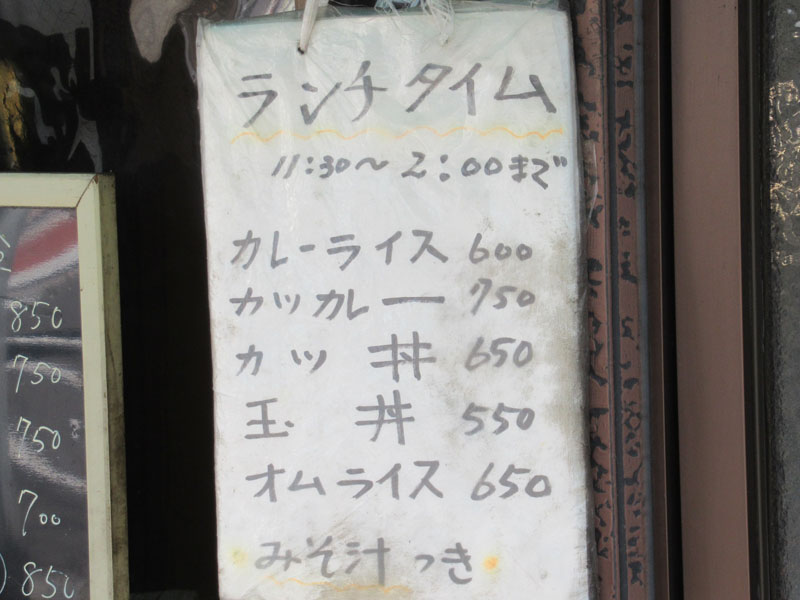 ランチタイム
11:30～2:00まで
カレーライス 600
カツカレー 750
カツ 丼 650
玉 丼 550
オムライス 650
みそ汁つき
850
750
750
700
850